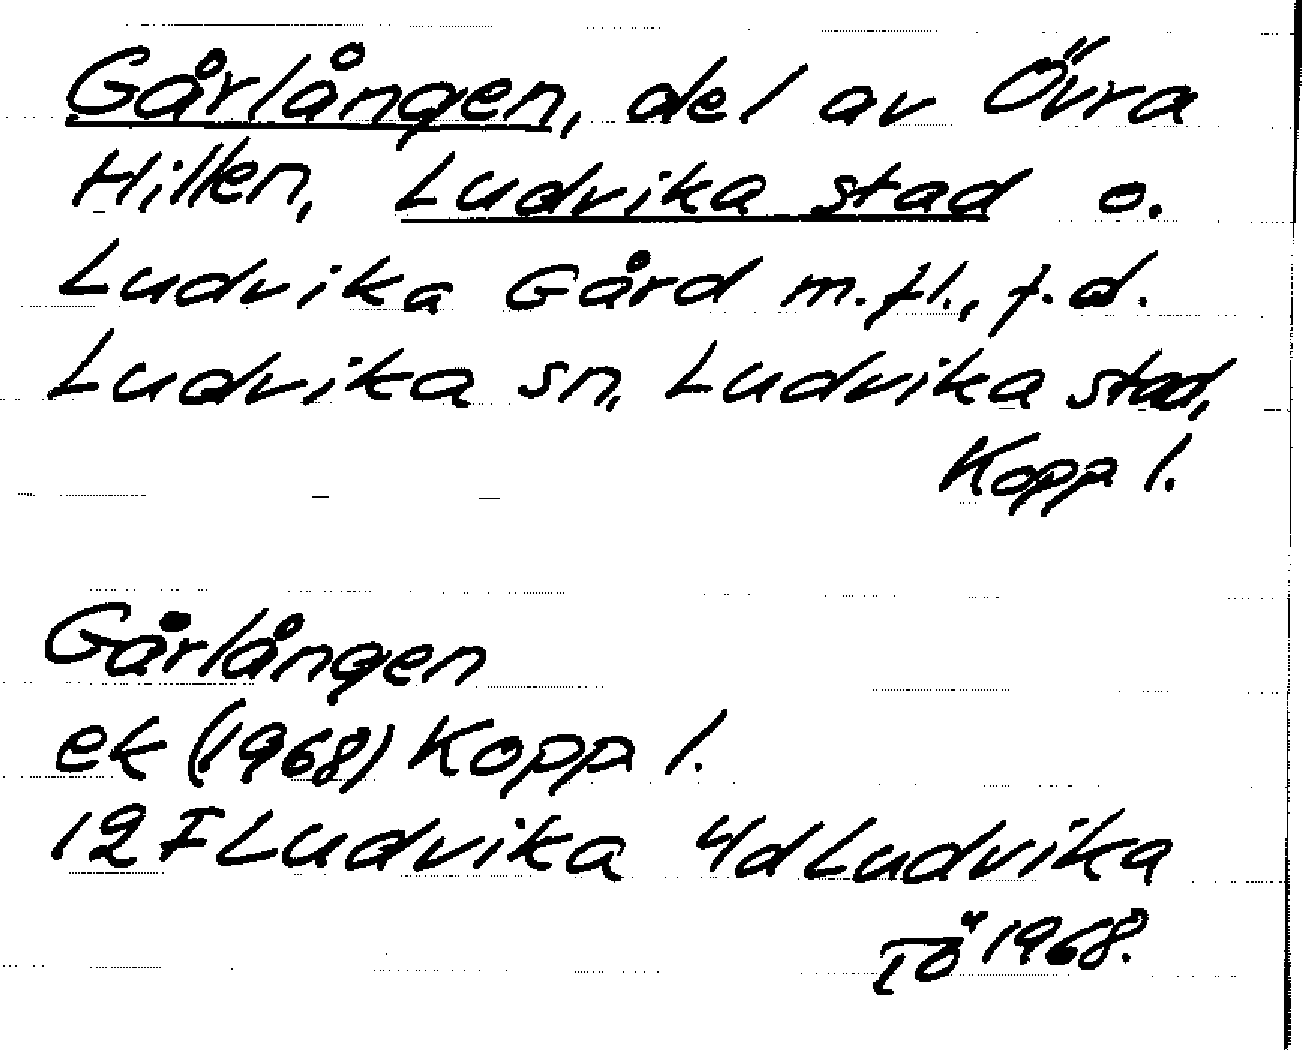 Gårlången, del av Övra
Hillen, Ludvika stad o.
Ludvika Gård m.fl., f.d.
Ludvika sn, Ludvika stad,
Kopp l.
Gårlången
ek (1968) Kopp l.
12 F Ludvika 4d Ludvika
TÖ 1968.